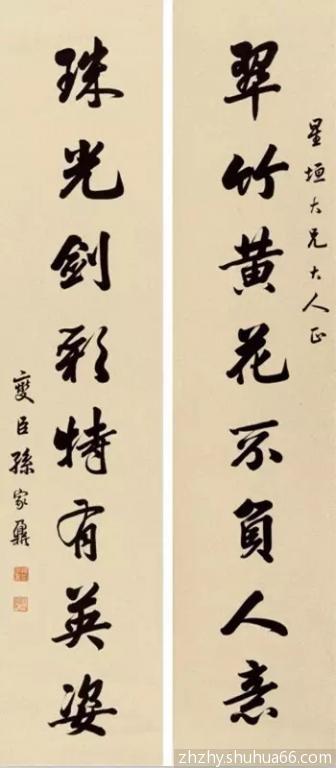 翠竹黄花不負人意
星垣大兄大人正
珠光劍彩特有英姿
燮臣孫家鼐
zhzhyshuhua66.com